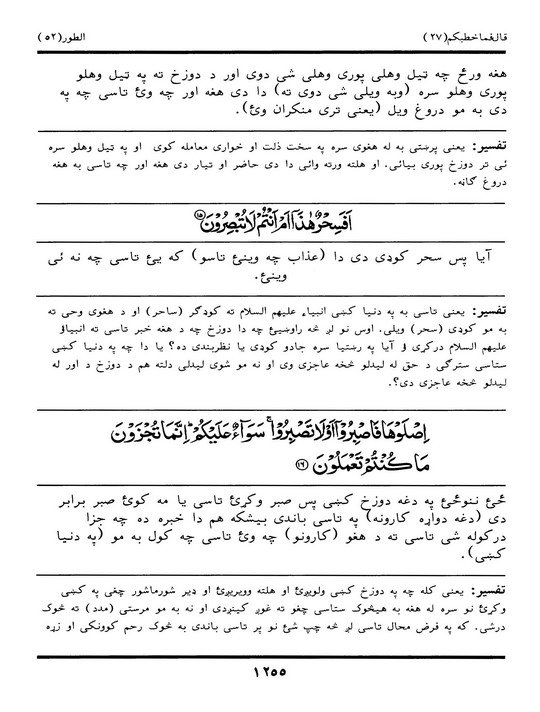 قال فما خطبکم (۲۷)
الطور (۵۲)
هغه ورځ چه ټیل وهلی پوری وهلی شی دوی اور د دوزخ ته په ټیل وهلو
پوری وهلو سره (وبه ویلی شی دوی ته) دا دی هغه اور چه وئ تاسی چه په
دی به مو دروغ ویل (یعنی تری منکران وئ).
تفسیر: یعنی پرښتی به له هغوی سره په سخت ذلت او خواری معامله کوی او په ټیل وهلو سره
ئی تر دوزخ پوری بیائی. او هلته ورته وائی دا دی حاضر او تیار دی هغه اور چه تاسی به هغه
دروغ ګاڼه.
اَفَسِحْرٌ هٰذَآ اَمْ اَنْتُمْ لَا تُبْصِرُوْنَ ﴿۱۵﴾
آیا پس سحر کوډی دی دا (عذاب چه وینئ تاسو) که یئ تاسی چه نه ئی
وینئ.
تفسیر: یعنی تاسی به په دنیا کښی انبیاء علیهم السلام ته کوډګر (ساحر) او د هغوی وحی ته
به مو کوډی (سحر) ویلی. اوس نو لږ څه راوښیئ چه دا دوزخ چه د هغه خبر تاسی ته انبیاؤ
علیهم السلام درکړی ؤ آیا په رښتیا سره جادو کوډی یا نظربندی ده؟ یا دا چه په دنیا کښی
ستاسی سترګی د حق له لیدلو څخه عاجزی وی او نه مو شوی لیدلی دلته هم د دوزخ د اور له
لیدلو څخه عاجزی دی؟.
اِصْلَوْهَا فَاصْبِرُوْٓا اَوْ لَا تَصْبِرُوْا ۚ سَوَآءٌ عَلَيْكُمْ ؕ اِنَّمَا تُجْزَوْنَ
مَا كُنْتُمْ تَعْمَلُوْنَ ﴿۱۶﴾
ځئ ننوځئ په دغه دوزخ کښی پس صبر وکړئ تاسی یا مه کوئ صبر برابر
دی (دغه دواړه کارونه) په تاسی باندی بیشکه هم دا خبره ده چه جزا
درکوله شی تاسی ته د هغو (کارونو) چه وئ تاسی چه کول به مو (په دنیا
کښی).
تفسیر: یعنی کله چه په دوزخ کښی ولویږئ او هلته وویریږئ او ډیر شورماشور چغی په کښی
وکړئ نو سره له هغه به هیڅوک ستاسی چغو ته غوږ کینږدی او نه به مو مرستی (مدد) ته څوک
درشی. که په فرض محال تاسی لږ څه چپ شئ نو پر تاسی باندی به څوک رحم کوونکی او زړه
۱۲۵۵